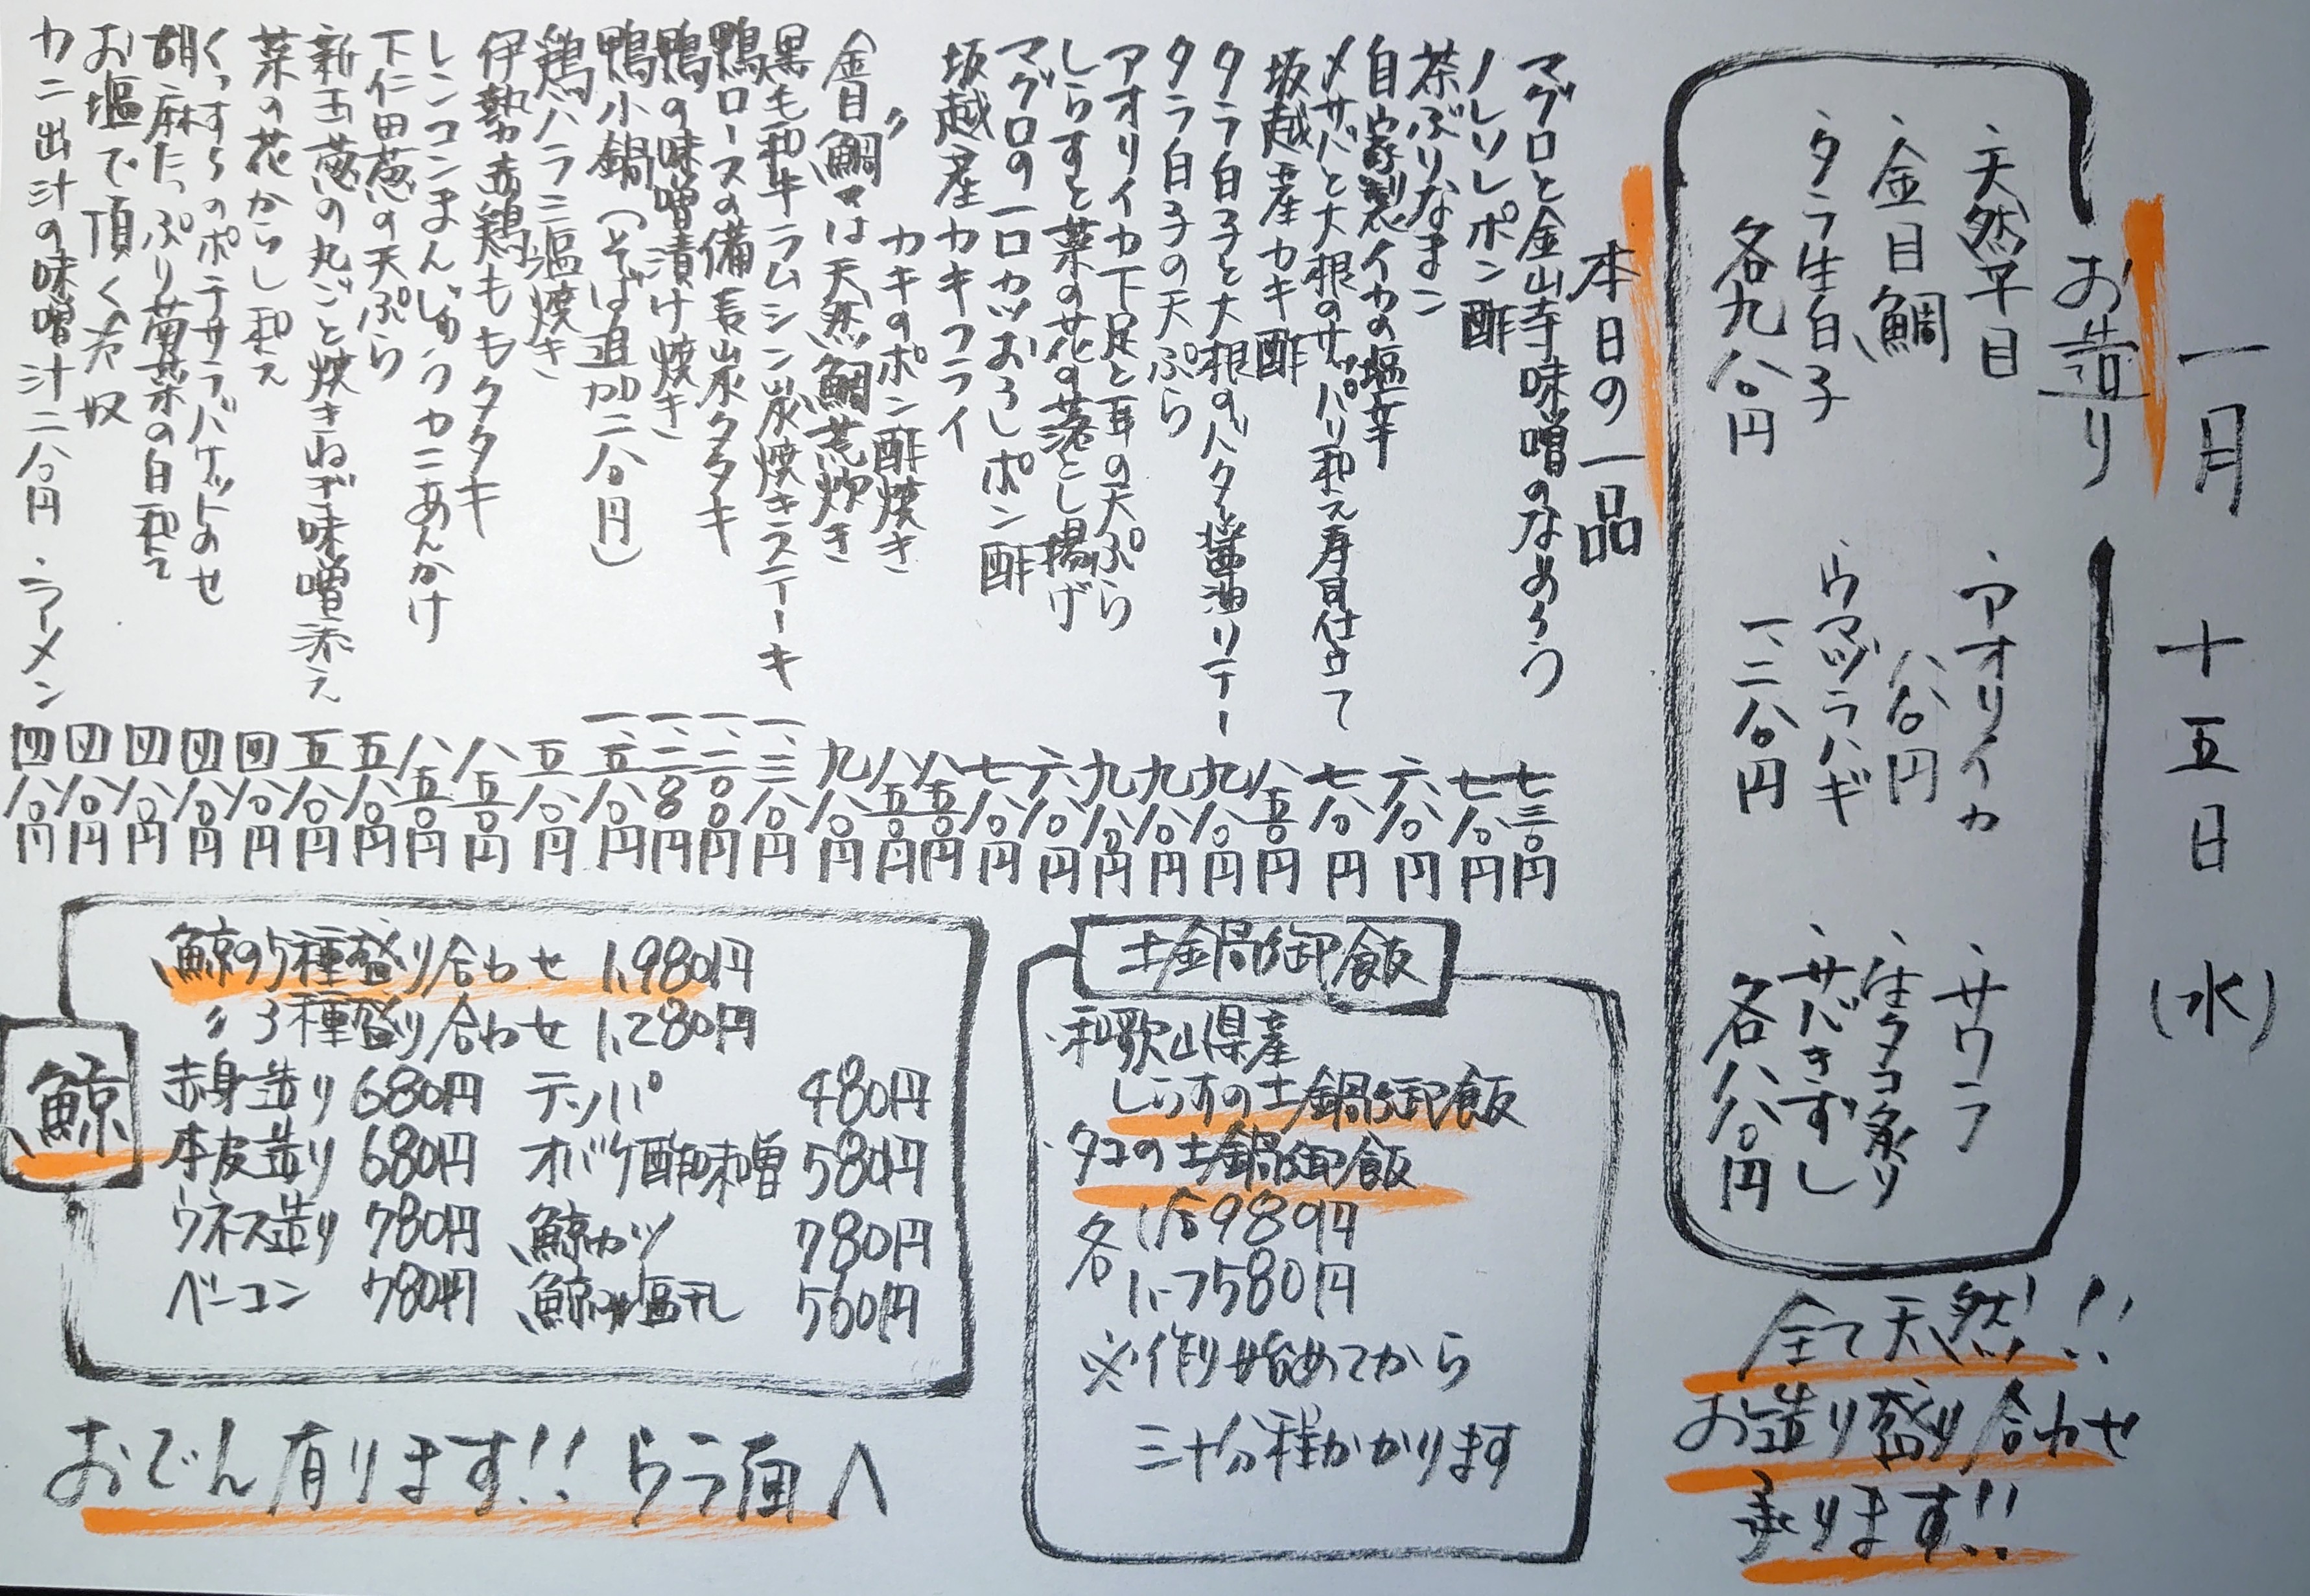 一月 十五日 (水)
お造り
・天然平目
・金目鯛
・タラ生白子
各九八〇円
・アオリイカ
八八〇円
・ウマヅラハギ
一、二八〇円
・サワラ
・生タコ炙り
・サバきずし
各八八〇円
全て天然!!
お造り盛り合わせ
承ります!!
本日の一品
マグロと金山寺味噌のなめろう 七三〇円
ノレソレポン酢 七八〇円
茶ぶりなまこ
自家製イカの塩辛 六八〇円
〆サバと大根のサッパリ和え寿司仕立て 七八〇円
坂越産カキ酢 八五〇円
タラ白子と大根のバター醤油ソテー 九八〇円
タラ白子の天ぷら 九八〇円
アオリイカ下足と耳の天ぷら 九八〇円
しらすと菜の花の落とし揚げ 六八〇円
マグロの一口カツおろしポン酢 七八〇円
坂越産カキフライ 八五〇円
〃 カキのポン酢焼き 八五〇円
金目鯛又は天然鯛荒炊き 九八〇円
黒毛和牛ラムシン炭焼きステーキ 一、三八〇円
鴨ロースの備長炭タタキ 一、二〇〇円
鴨の味噌漬け焼き 一、二八〇円
鴨小鍋(そば追加二八〇円) 一、五八〇円
鶏ハラミ塩焼き 五八〇円
伊勢赤鶏ももタタキ 八五〇円
レンコンまんじゅうカニあんかけ 八五〇円
下仁田葱の天ぷら 五八〇円
新玉葱の丸ごと焼きねぎ味噌添え 五八〇円
菜の花からし和え 四八〇円
くっすらのポテサラバケットのせ 四八〇円
胡麻たっぷり菊菜の白和え 四八〇円
お塩で頂く冷奴 四八〇円
カニ出汁の味噌汁二八〇円 ・ラーメン 四八〇円
土鍋御飯
・和歌山県産
しらすの土鍋御飯
・タコの土鍋御飯
各 1合980円
1.5 1580円
※作り始めてから
三十分程かかります
鯨
鯨の5種盛り合わせ 1,980円
〃 3種盛り合わせ 1,280円
赤身造り 680円 テッパ 480円
本皮造り 680円 オバケ酢味噌 580円
ウネス造り 780円 鯨カツ 780円
ベーコン 780円 鯨の塩 580円
おでん有ります!! ウラ面へ